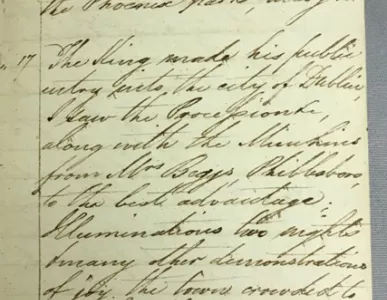 the Phoenix Park,
17 The King made his public
entry into, the city of Dublin,
I saw the Processionte,
along with the Minchins
from Mrs Beggs, Phibbsboro,
to the best advantage:
Illuminations two nights
& many other demonstrations
of joy, the town crowded to